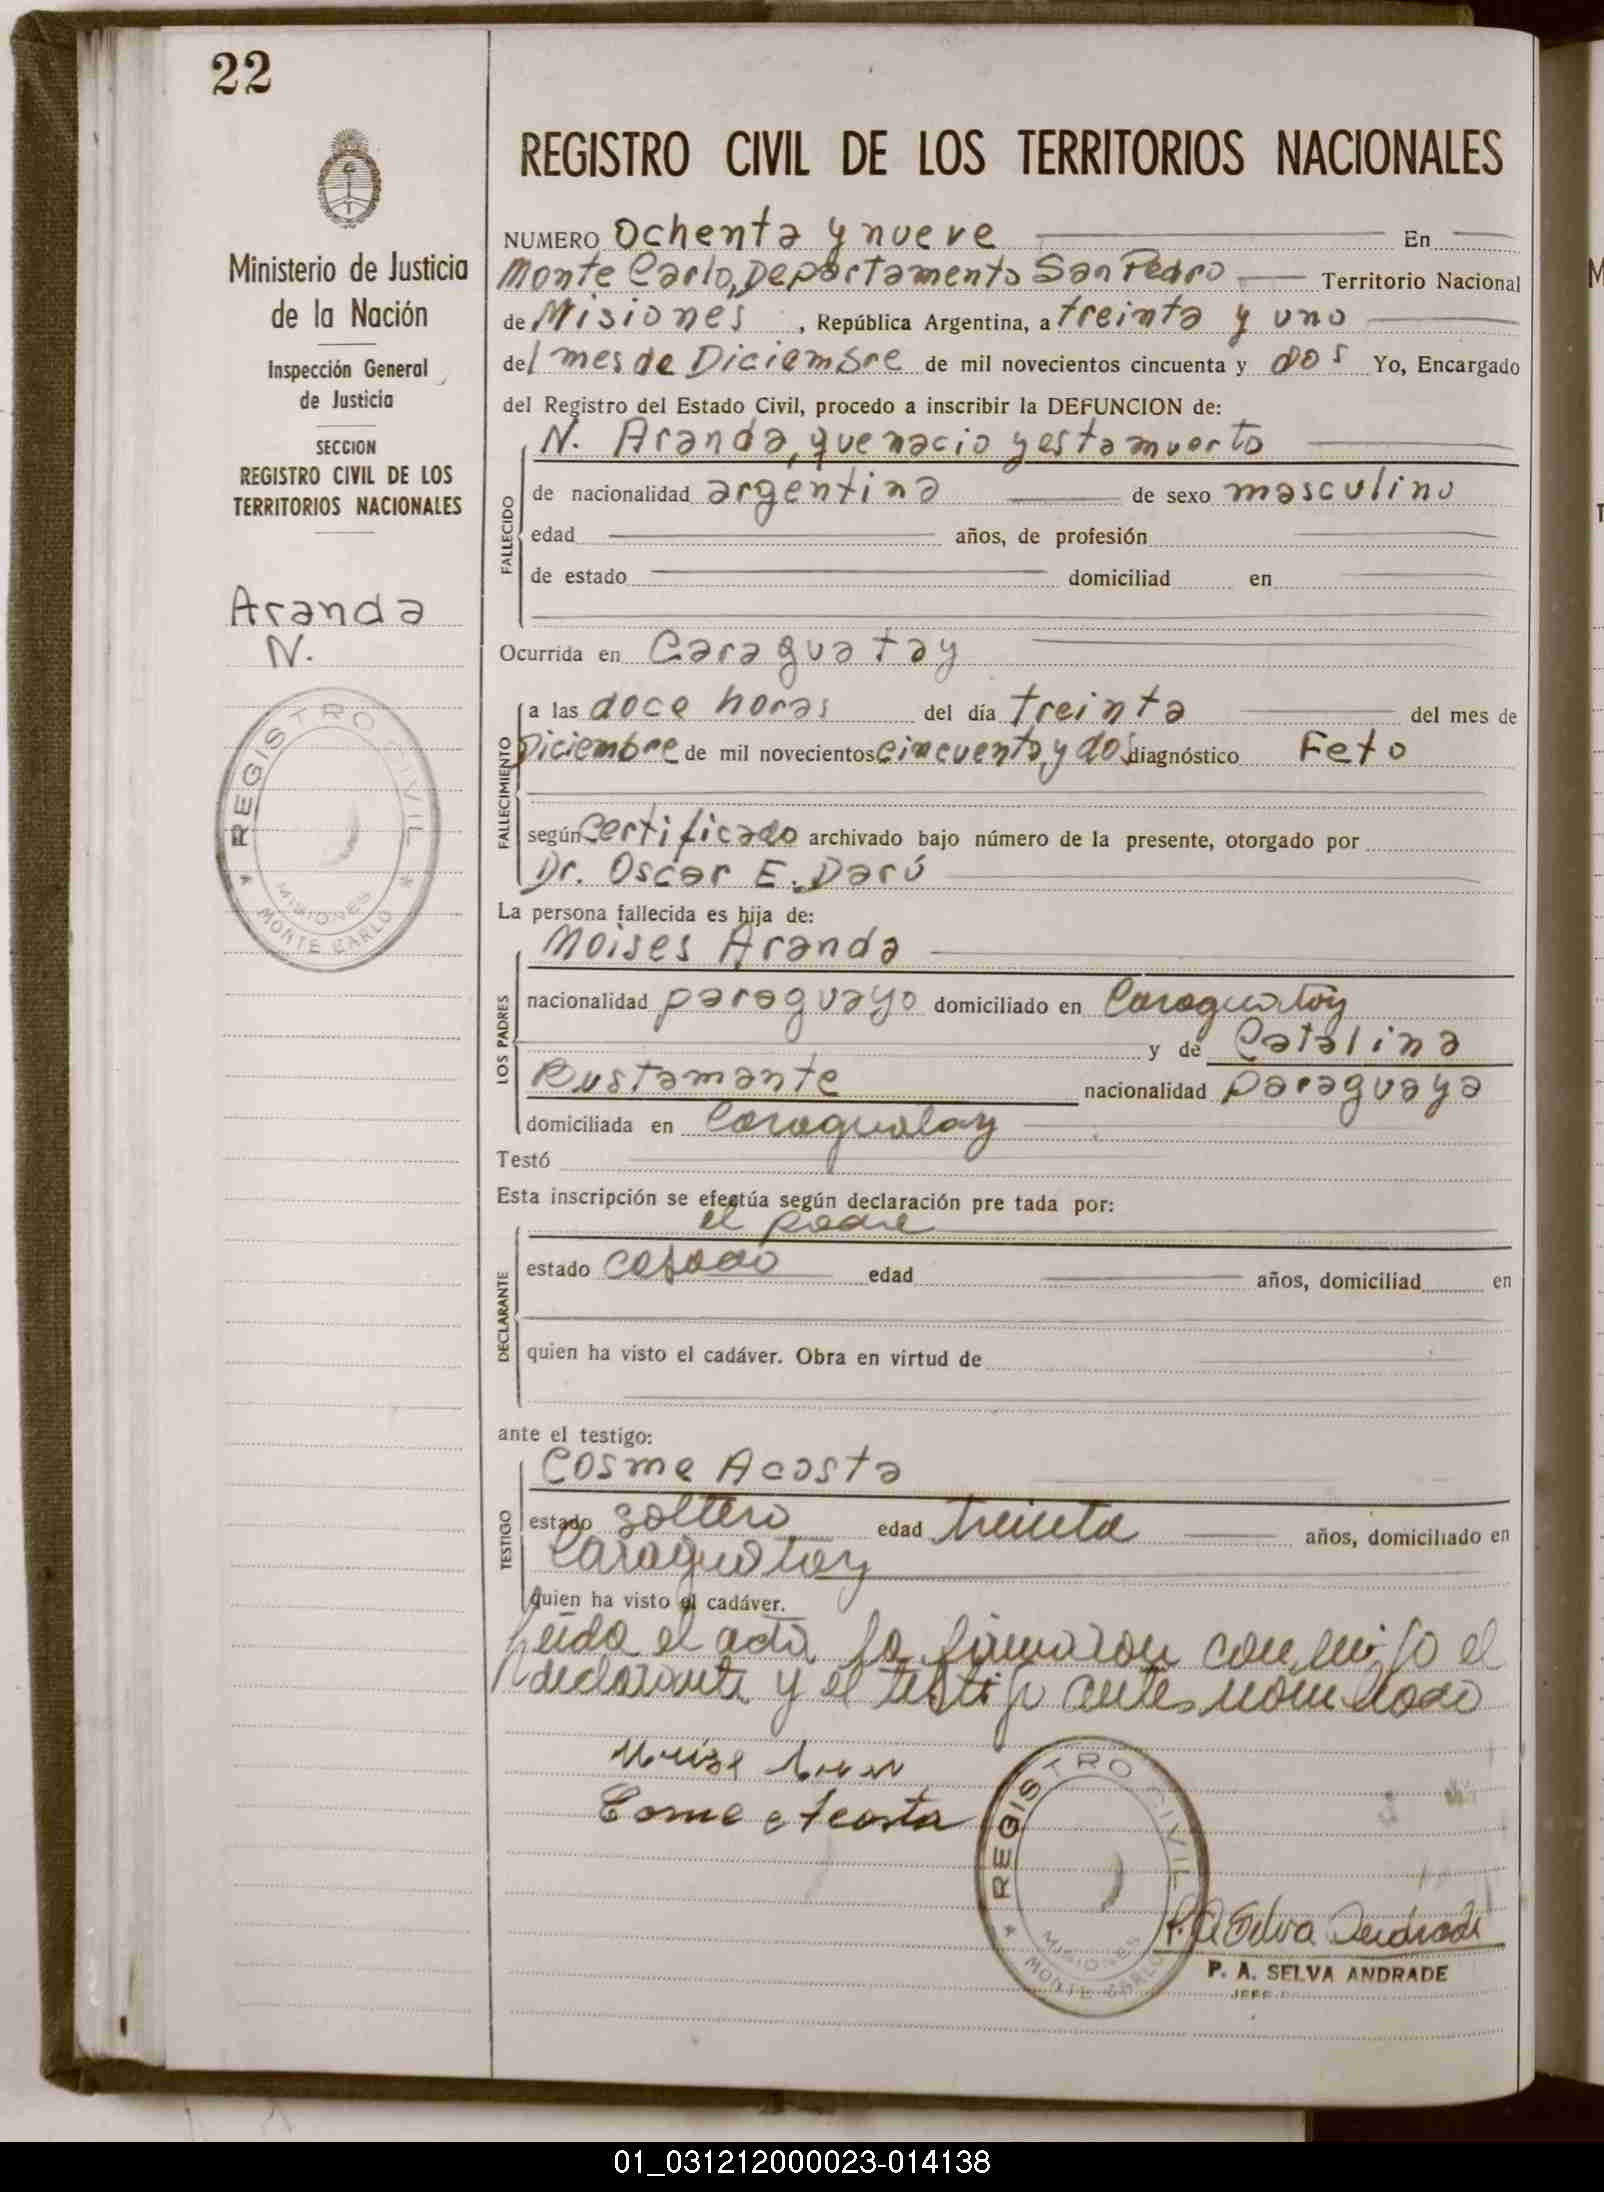 22
Ministerio de Justicia
de la Nación
Inspección General
de Justicia
SECCION
REGISTRO CIVIL DE LOS
TERRITORIOS NACIONALES
Aranda
N.
REGISTRO CIVIL
MISIONES
* MONTE CARLO *
REGISTRO CIVIL DE LOS TERRITORIOS NACIONALES
NUMERO Ochenta y nueve En
Monte Carlo, Departamento San Pedro Territorio Nacional
de Misiones, República Argentina, a treinta y uno
del mes de Diciembre de mil novecientos cincuenta y dos Yo, Encargado
del Registro del Estado Civil, procedo a inscribir la DEFUNCION de:
N. Aranda, que nacio y esta muerto
FALLECIDO
de nacionalidad argentina de sexo masculino
edad años, de profesión
de estado domiciliad en
Ocurrida en Caraguatay
FALLECIMIENTO
a las doce horas del día treinta del mes de
Diciembre de mil novecientos cincuenta y dos diagnóstico Feto
según Certificado archivado bajo número de la presente, otorgado por
Dr. Oscar E. Darú
La persona fallecida es hija de:
LOS PADRES
Moises Aranda
nacionalidad paraguayo domiciliado en Caraguatay
y de Catalina
Bustamante nacionalidad paraguaya
domiciliada en Caraguatay
Testó
Esta inscripción se efectúa según declaración pre tada por:
DECLARANTE
el padre
estado casado edad años, domiciliad en
quien ha visto el cadáver. Obra en virtud de
ante el testigo:
TESTIGO
Cosme Acosta
estado soltero edad treinta años, domiciliado en
Caraguatay
quien ha visto el cadáver.
Leida el acta la firmaron conmigo el
declarante y el testigo antes nombrado
Cosme Acosta
REGISTRO CIVIL
MISIONES
* MONTE CARLO
P. A. Selva Andrade
P. A. SELVA ANDRADE
JEFE
01_031212000023-014138